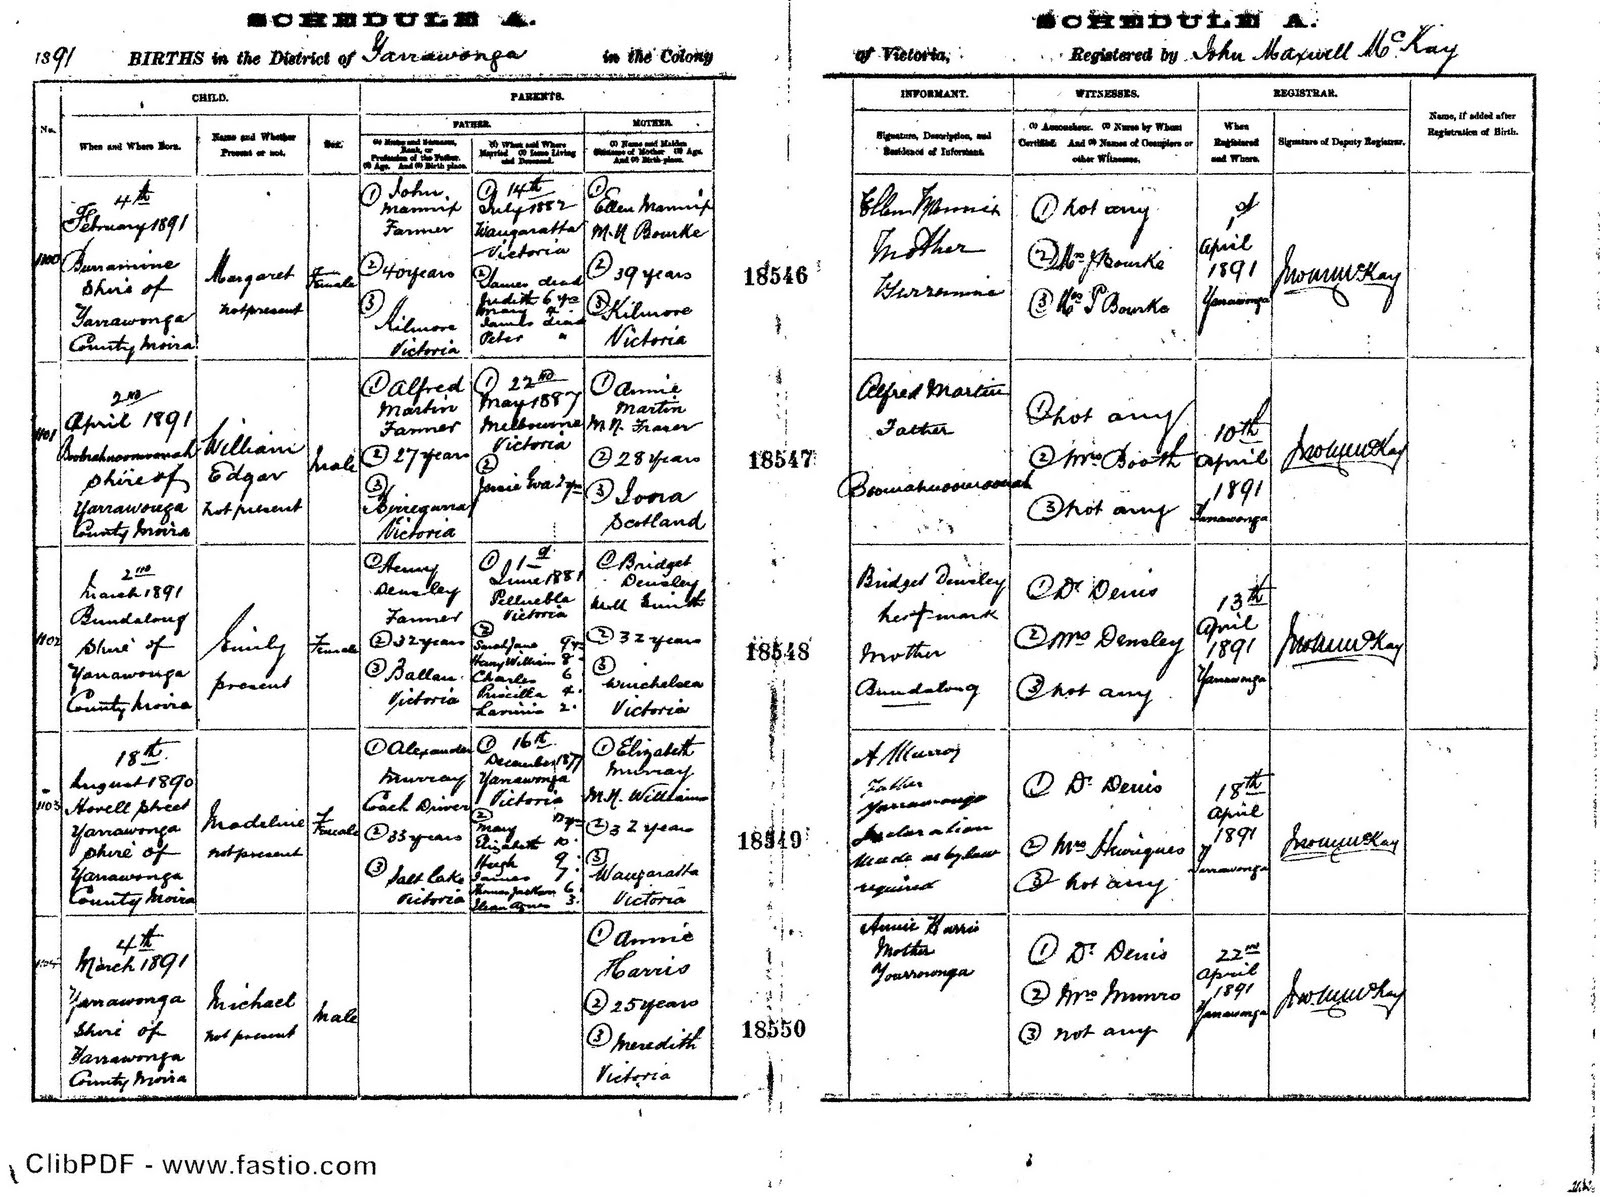 SCHEDULE A.
SCHEDULE A.
1891 BIRTHS in the District of Yarrawonga in the Colony
of Victoria, Registered by John Maxwell McKay
CHILD.
PARENTS.
INFORMANT.
WITNESSES.
REGISTRAR.
Name, if added after
Registration of Birth.
No.
When and Where Born.
Name and Whether
Present or not.
Sex.
FATHER.
MOTHER.
(1) Name and Surname,
Rank, or
Profession of the Father.
(2) Age. And (3) Birth place.
(1) When and Where
Married (2) Issue Living
and Deceased.
(1) Name and Maiden
Surname of Mother (2) Age.
And (3) Birth place.
Signature, Description, and
Residence of Informant.
(1) Accoucheur. (2) Nurse by Whom
Certified. And (3) Names of Occupiers or
other Witnesses.
When
Registered
and Where.
Signature of Deputy Registrar.
1100
4th
February 1891
Burramine
Shire of
Yarrawonga
County Moira
Margaret
not present
Female
(1) John
Mannix
Farmer
(2) 40 years
(3)
Kilmore
Victoria
(1) 14th
July 1882
Wangaratta
Victoria
(2)
James dead
Judith 6 yrs
Mary 4 "
James dead
Peter "
(1)
Ellen Mannix
M.N Bourke
(2) 39 years
(3) Kilmore
Victoria
18546
Ellen Mannix
Mother
Burramine
(1) not any
(2) Mrs J Bourke
(3) Mrs P Bourke
1st
April
1891
Yarrawonga
Jno M McKay
1101
2nd
April 1891
Boorahnoomoonah
Shire of
Yarrawonga
County Moira
William
Edgar
not present
Male
(1) Alfred
Martin
Farmer
(2) 27 years
(3)
Birregurra
Victoria
(1) 22nd
May 1887
Melbourne
Victoria
(2)
Jessie Eva 2 yrs
(1) Annie
Martin
M.N. Fraser
(2) 28 years
(3) Iona
Scotland
18547
Alfred Martin
Father
(1) not any
(2) Mrs Booth
(3) not any
10th
April
1891
Yarrawonga
Jno M McKay
1102
2nd
March 1891
Bundalong
Shire of
Yarrawonga
County Moira
Emily
present
Female
(1) Henry
Densley
Farmer
(2) 32 years
(3) Ballan
Victoria
(1) 1st
June 1881
Peluebla
Victoria
(2)
Sarah Jane 9 yrs
Harry William 8 "
Charles 6
Priscilla 4 "
Lavinia 2 "
(1) Bridget
Densley
M.N Smith
(2) 32 years
(3)
Winchelsea
Victoria
18548
Bridget Densley
her + mark
Mother
Bundalong
(1) Dr Denis
(2) Mrs Densley
(3) not any
13th
April
1891
Yarrawonga
Jno M McKay
1103
18th
August 1890
Hovell Street
Yarrawonga
Shire of
Yarrawonga
County Moira
Madeline
not present
Female
(1) Alexander
Murray
Coach Driver
(2) 33 years
(3) Salt Lake
Victoria
(1) 16th
December 1877
Yarrawonga
Victoria
(2)
Mary 12 yrs
Elizabeth 10 "
Hugh 9 "
James 7 "
Thomas Jackson 6 "
Agnes 3 "
(1) Elizabeth
Murray
M.N. Williams
(2) 32 years
(3)
Wangaratta
Victoria
18549
A Murray
Father
Yarrawonga
Declaration
Made as by law
required
(1) Dr Denis
(2) Mrs Henriques
(3) not any
18th
April
1891
Yarrawonga
Jno M McKay
1104
4th
March 1891
Yarrawonga
Shire of
Yarrawonga
County Moira
Michael
not present
Male
(1) Annie
Harris
(2) 25 years
(3) Meredith
Victoria
18550
Annie Harris
Mother
Yarrawonga
(1) Dr Denis
(2) Mrs Munro
(3) not any
22nd
April
1891
Yarrawonga
Jno M McKay
ClibPDF - www.fastio.com